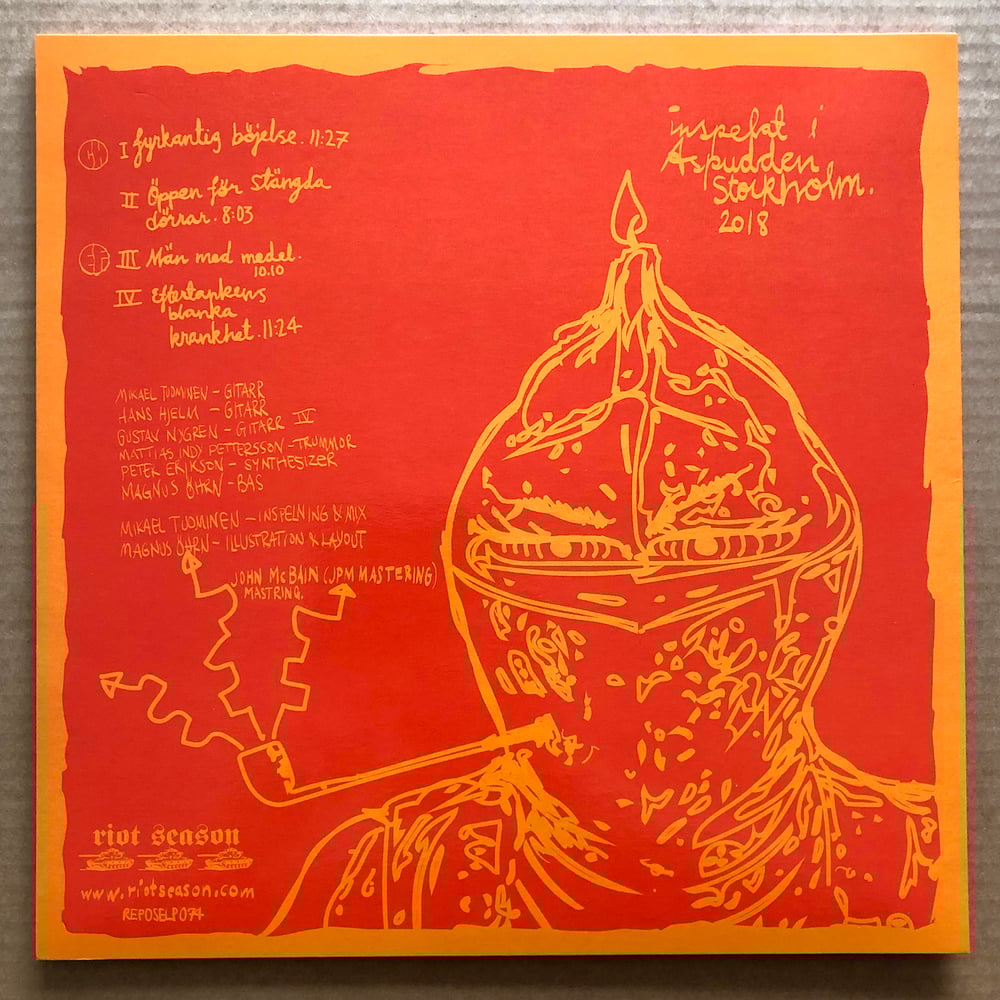 I fyrkantig böjelse. 11:27
II Öppen för stängda
dörrar. 8:03
III Män med medel.
10.10
IV Eftertankens
blanka
krankhet. 11:24
inspelat i
Aspudden
Stockholm.
2018
MIKAEL TUOMINEN – GITARR
HANS HJELM – GITARR
GUSTAV NYGREN – GITARR IV
MATTIAS INDY PETTERSSON – TRUMMOR
PETER ERIKSON – SYNTHESIZER
MAGNUS ÖHRN – BAS
MIKAEL TUOMINEN – INSPELNING & MIX
MAGNUS ÖHRN – ILLUSTRATION & LAYOUT
JOHN McBAIN (JPM MASTERING)
MASTRING.
riot season
www.riotseason.com
REPOSELP074